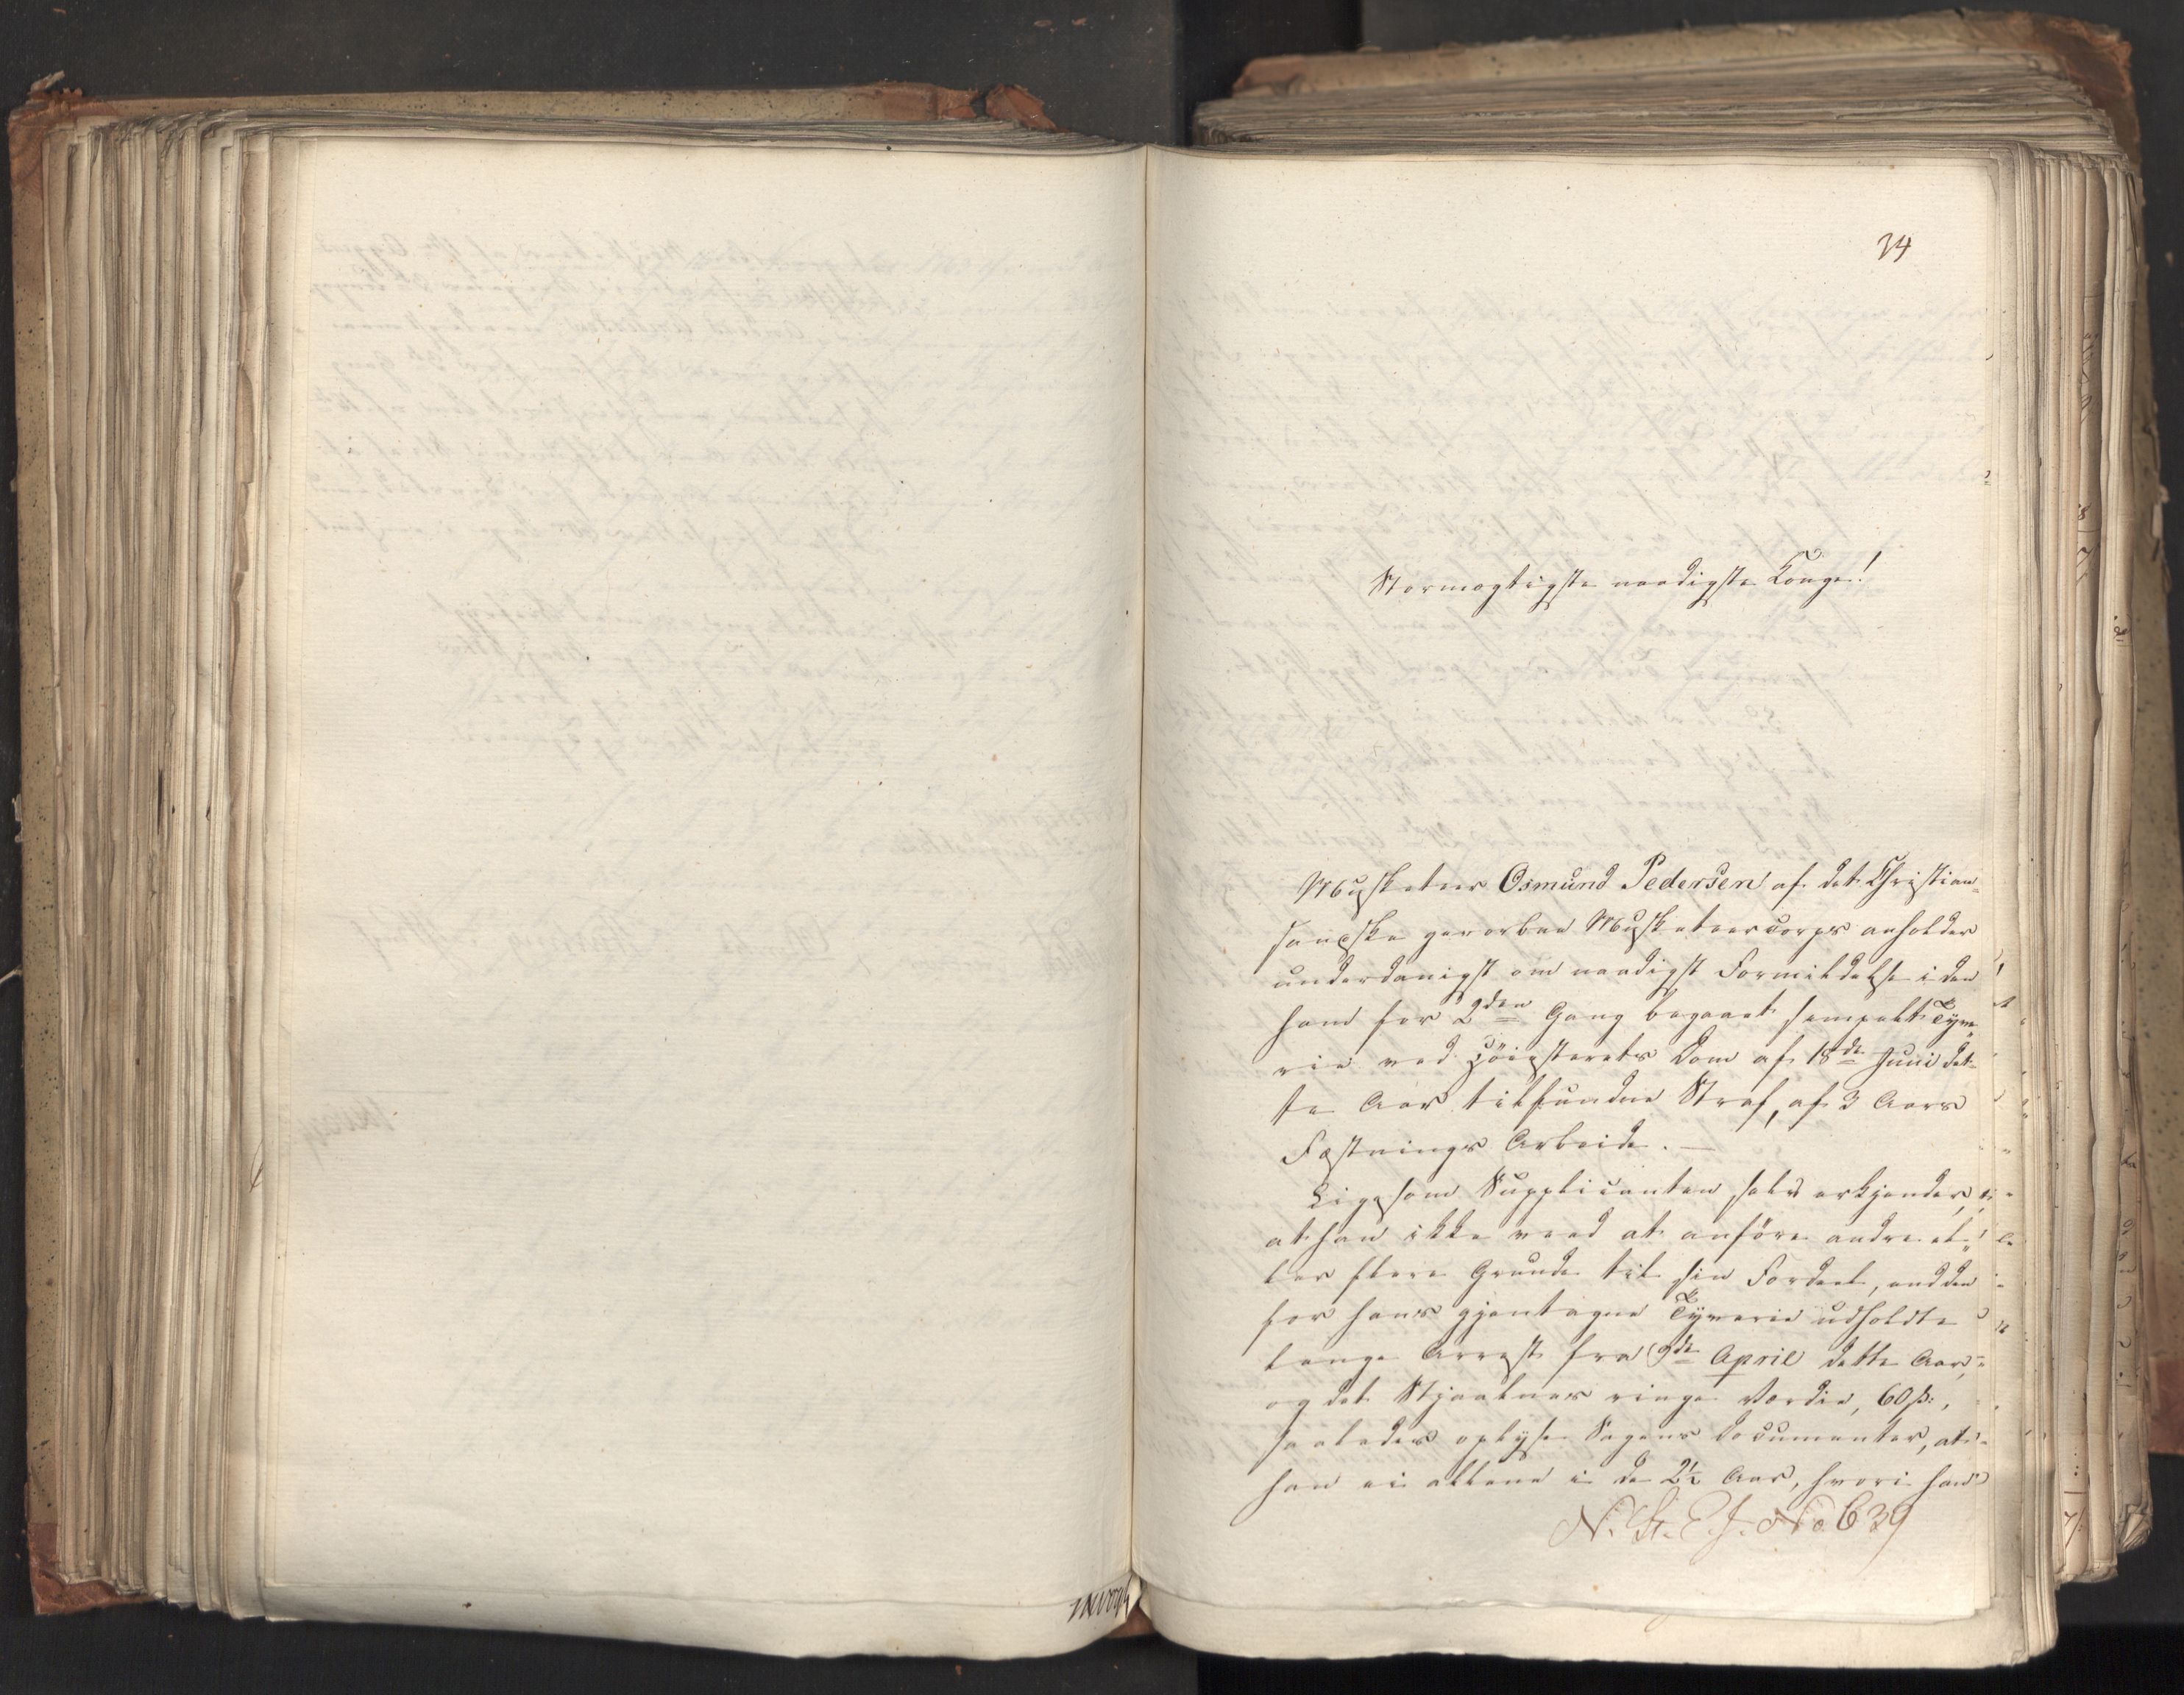 34
Stormægtigste naadigste Konge!
Musketeer Osmund Pedersen af det Christian=
sandske gevorbne Musketeercorps anholder
underdanigst om naadigst Formildelse i den
ham for 2den Gang begaaet simpelt Tyve=
rie ved Höiesterets Dom af 18de Juni det=
te Aar tilfundne Straf, af 3 Aars
Fæstnings Arbeide. —
Ligesom Supplicanten selv erkjender,
at han ikke veed at anföre andre el=
ler flere Grunde til sin Fordeel, end den
for hans gjentagne Tyverie udholdte
lange Arrest fra 9de April dette Aar,
og det Stjaalnes ringe Værdie, 60 ß:,
saaledes oplyse Sagens Documenter, at
han ei allene i de 2½ Aar, hvori han
N. St. E. J. No 639